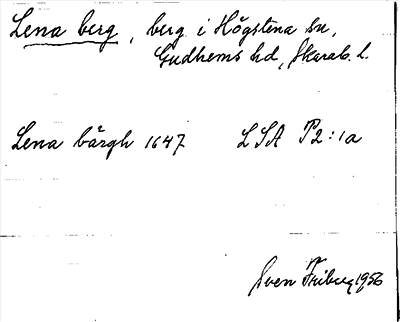 Lena berg, berg i Högstena sn,
Gudhems hd, Skarab. l.
Lena bärgh 1647 LSA P2:1a
Sven Friberg 1956